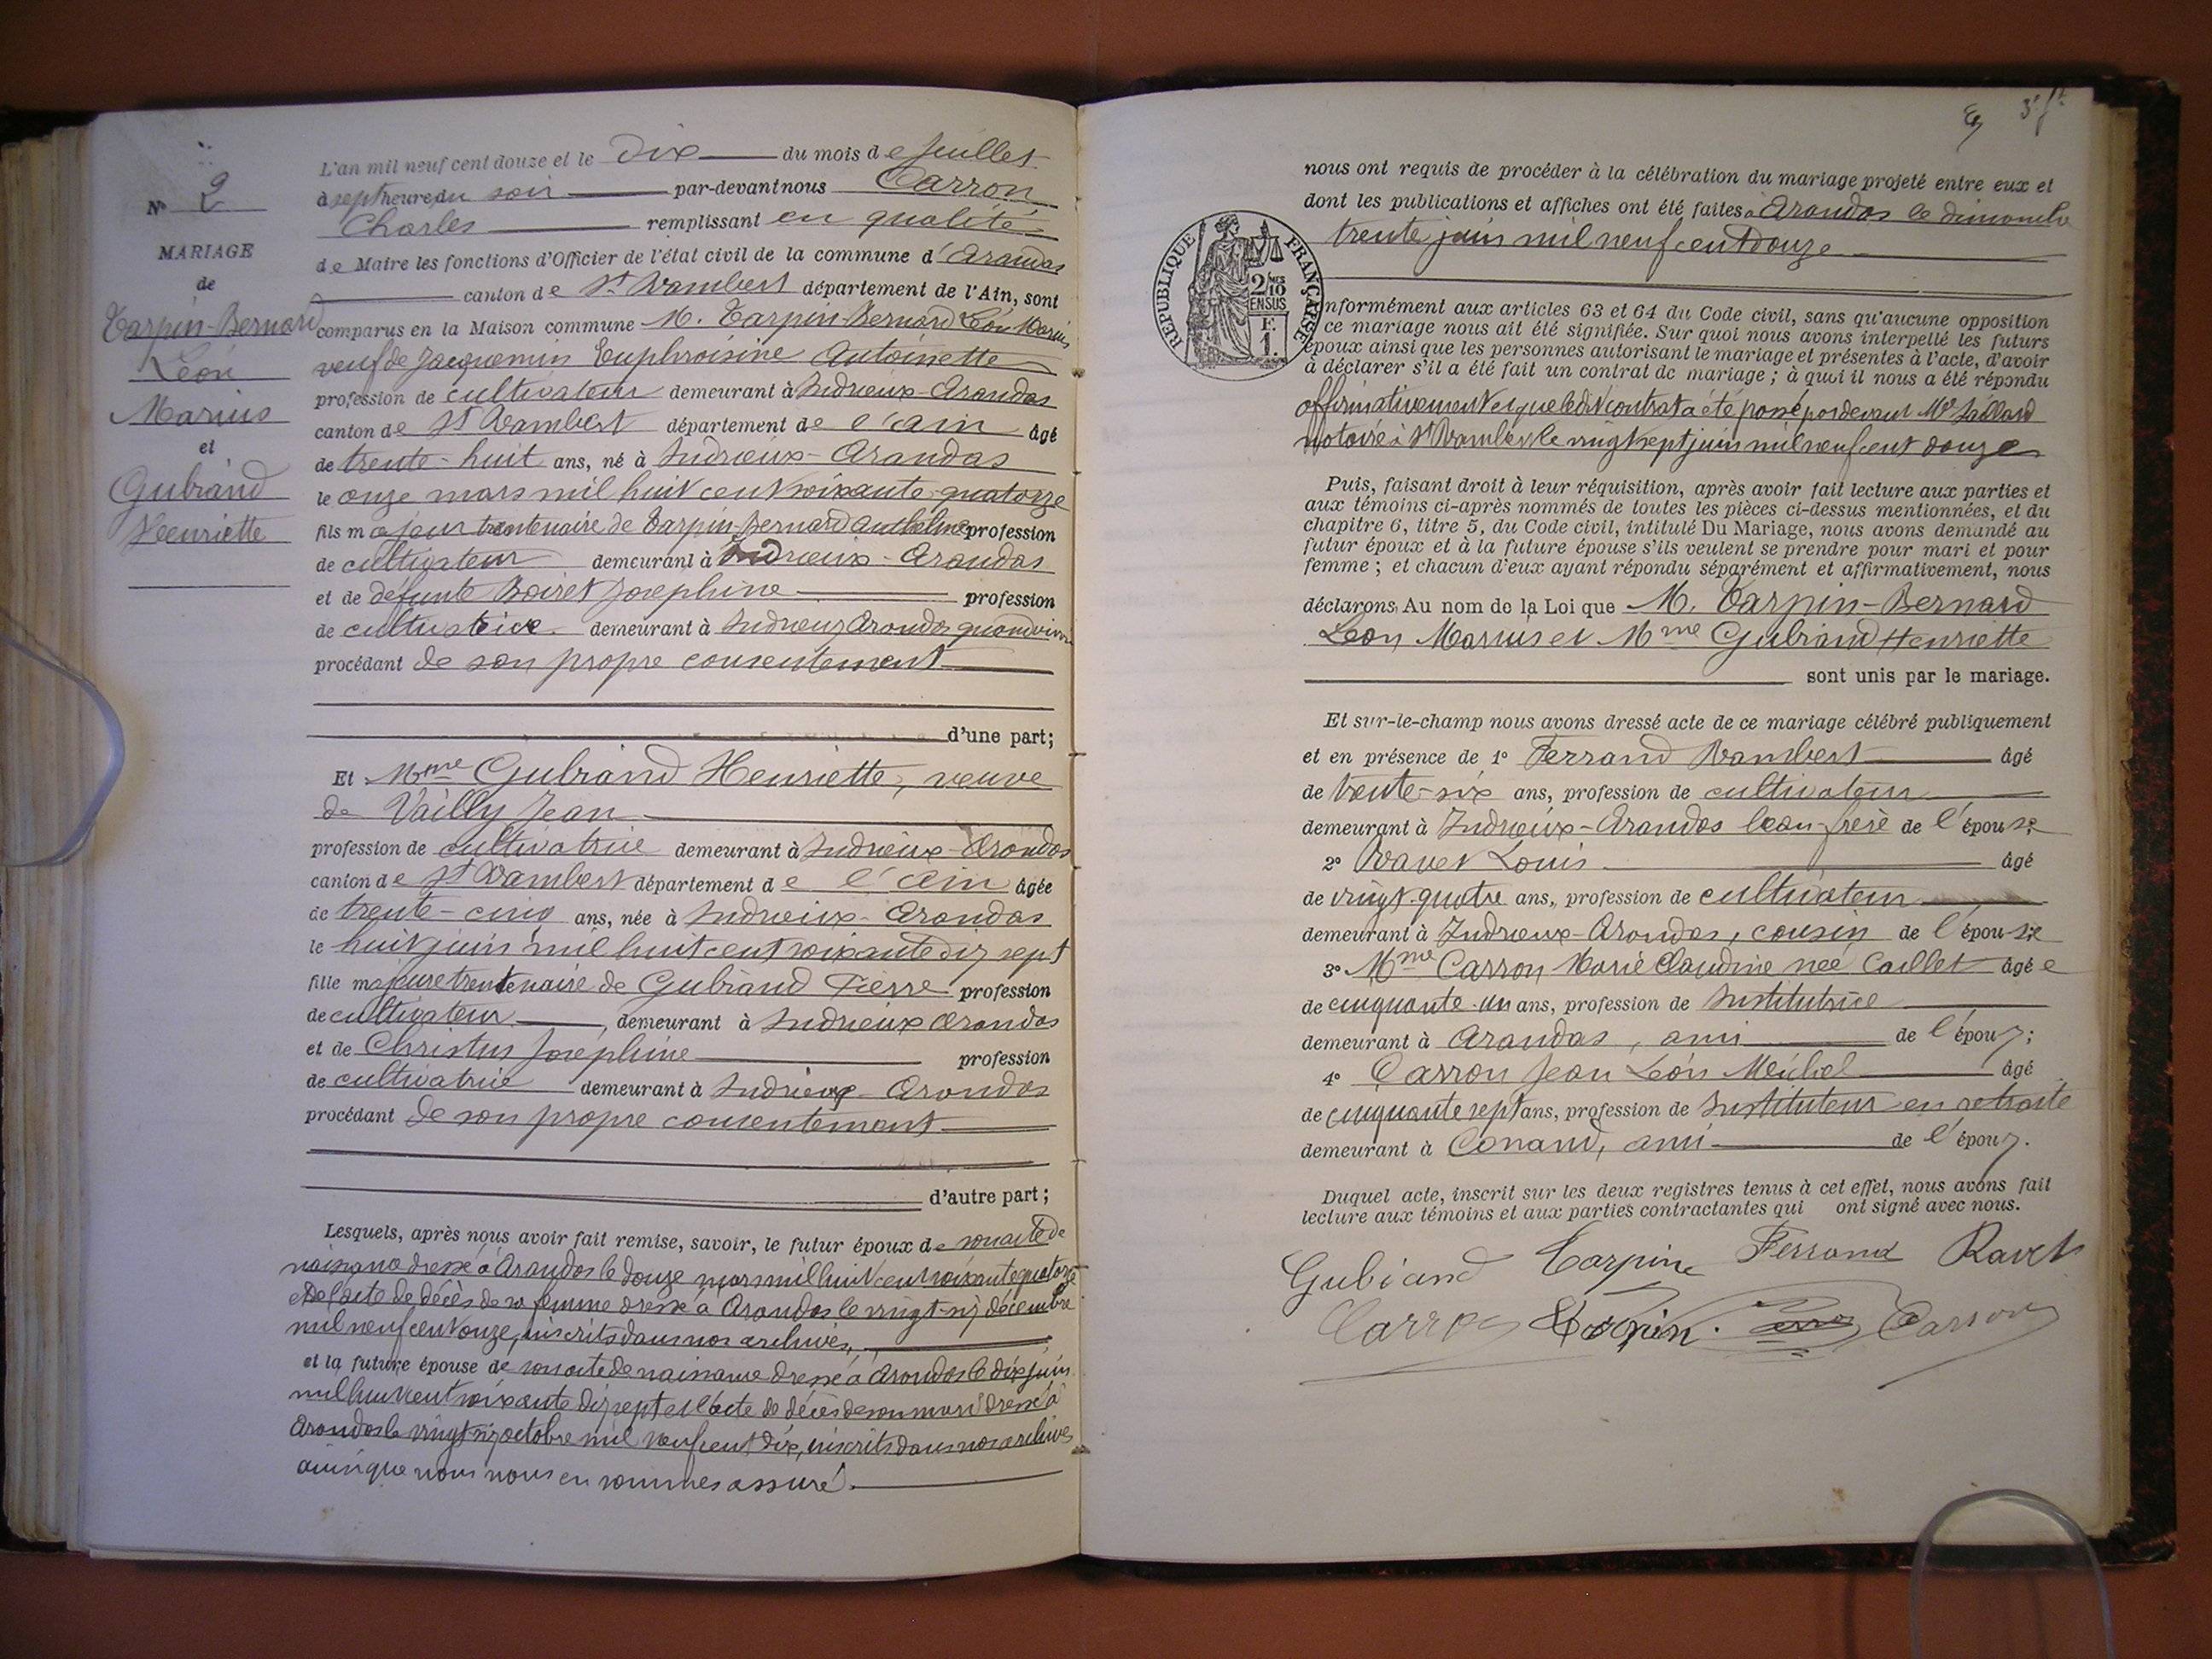 N° 2
MARIAGE
de
Tarpin-Bernard
Léon
Marius
et
Gubiand
Henriette
L'an mil neuf cent douze et le dix du mois de juillet
à sept heure du soir par-devant nous Carron
Charles remplissant en qualité
de Maire les fonctions d'Officier de l'état civil de la commune d'Arandas
canton de St Rambert département de l'Ain, sont
comparus en la Maison commune M. Tarpin-Bernard Léon Marius
veuf de Jacquemin Euphroisine Antoinette
profession de cultivateur demeurant à Indrieux-Arandas
canton de St Rambert département de l'Ain âgé
de trente-huit ans, né à Indrieux-Arandas
le onze mars mil huit cent soixante-quatorze
fils majeur trentenaire de Tarpin-Bernard Anthelme profession
de cultivateur demeurant à Indrieux-Arandas
et de défunte Boiret Joséphine profession
de cultivatrice demeurant à Indrieux Arandas quand vivait
procédant de son propre consentement
d'une part;
Et Mme Gubiand Henriette, veuve
de Vailly Jean
profession de cultivatrice demeurant à Indrieux-Arandas
canton de St Rambert département de l'Ain âgée
de trente-cinq ans, née à Indrieux-Arandas
le huit juin mil huit cent soixante dix sept
fille majeure trentenaire de Gubiand Pierre profession
de cultivateur, demeurant à Indrieux Arandas
et de Christus Joséphine profession
de cultivatrice demeurant à Indrieux-Arandas
procédant de son propre consentement
d'autre part;
Lesquels, après nous avoir fait remise, savoir, le futur époux de son acte de
naissance dressé à Arandas le douze mars mil huit cent soixante quatorze
et de l'acte de décès de sa femme dressé à Arandas le vingt-six décembre
mil neuf cent onze, inscrits dans nos archives,
et la future épouse de son acte de naissance dressé à Arandas le dix juin
mil huit cent soixante dix sept et l'acte de décès de son mari dressé à
Arandas le vingt-six octobre mil neuf cent dix, inscrits dans nos archives
ainsi que nous nous en sommes assuré.
nous ont requis de procéder à la célébration du mariage projeté entre eux et
dont les publications et affiches ont été faites à Arandas le dimanche
trente juin mil neuf cent douze
REPUBLIQUE FRANÇAISE
2/10
EN SUS
F.
1.
nformément aux articles 63 et 64 du Code civil, sans qu'aucune opposition
ce mariage nous ait été signifiée. Sur quoi nous avons interpellé les futurs
époux ainsi que les personnes autorisant le mariage et présentes à l'acte, d'avoir
à déclarer s'il a été fait un contrat de mariage; à quoi il nous a été répondu
affirmativement et que ledit contrat a été passé pardevant Me Saillard
notaire à St Rambert le vingt sept juin mil neuf cent douze
Puis, faisant droit à leur réquisition, après avoir fait lecture aux parties et
aux témoins ci-après nommés de toutes les pièces ci-dessus mentionnées, et du
chapitre 6, titre 5, du Code civil, intitulé Du Mariage, nous avons demandé au
futur époux et à la future épouse s'ils veulent se prendre pour mari et pour
femme; et chacun d'eux ayant répondu séparément et affirmativement, nous
déclarons Au nom de la Loi que M. Tarpin-Bernard
Léon Marius et Mme Gubiand Henriette
sont unis par le mariage.
Et sur-le-champ nous avons dressé acte de ce mariage célébré publiquement
et en présence de 1° Ferrand Rambert âgé
de trente-six ans, profession de cultivateur
demeurant à Indrieux-Arandas beau-frère de l'épouse
2° Ravet Louis âgé
de vingt-quatre ans, profession de cultivateur
demeurant à Indrieux-Arandas, cousin de l'épouse
3° Mme Carron Marie Claudine née Caillet âgée
de cinquante-un ans, profession de Institutrice
demeurant à Arandas, ami de l'époux;
4° Carron Jean Léon Michel âgé
de cinquante sept ans, profession de Instituteur en retraite
demeurant à Conand, ami de l'époux.
Duquel acte, inscrit sur les deux registres tenus à cet effet, nous avons fait
lecture aux témoins et aux parties contractantes qui ont signé avec nous.
Gubiand Tarpin Ferrand Ravet
Carron Tarpin. Carron